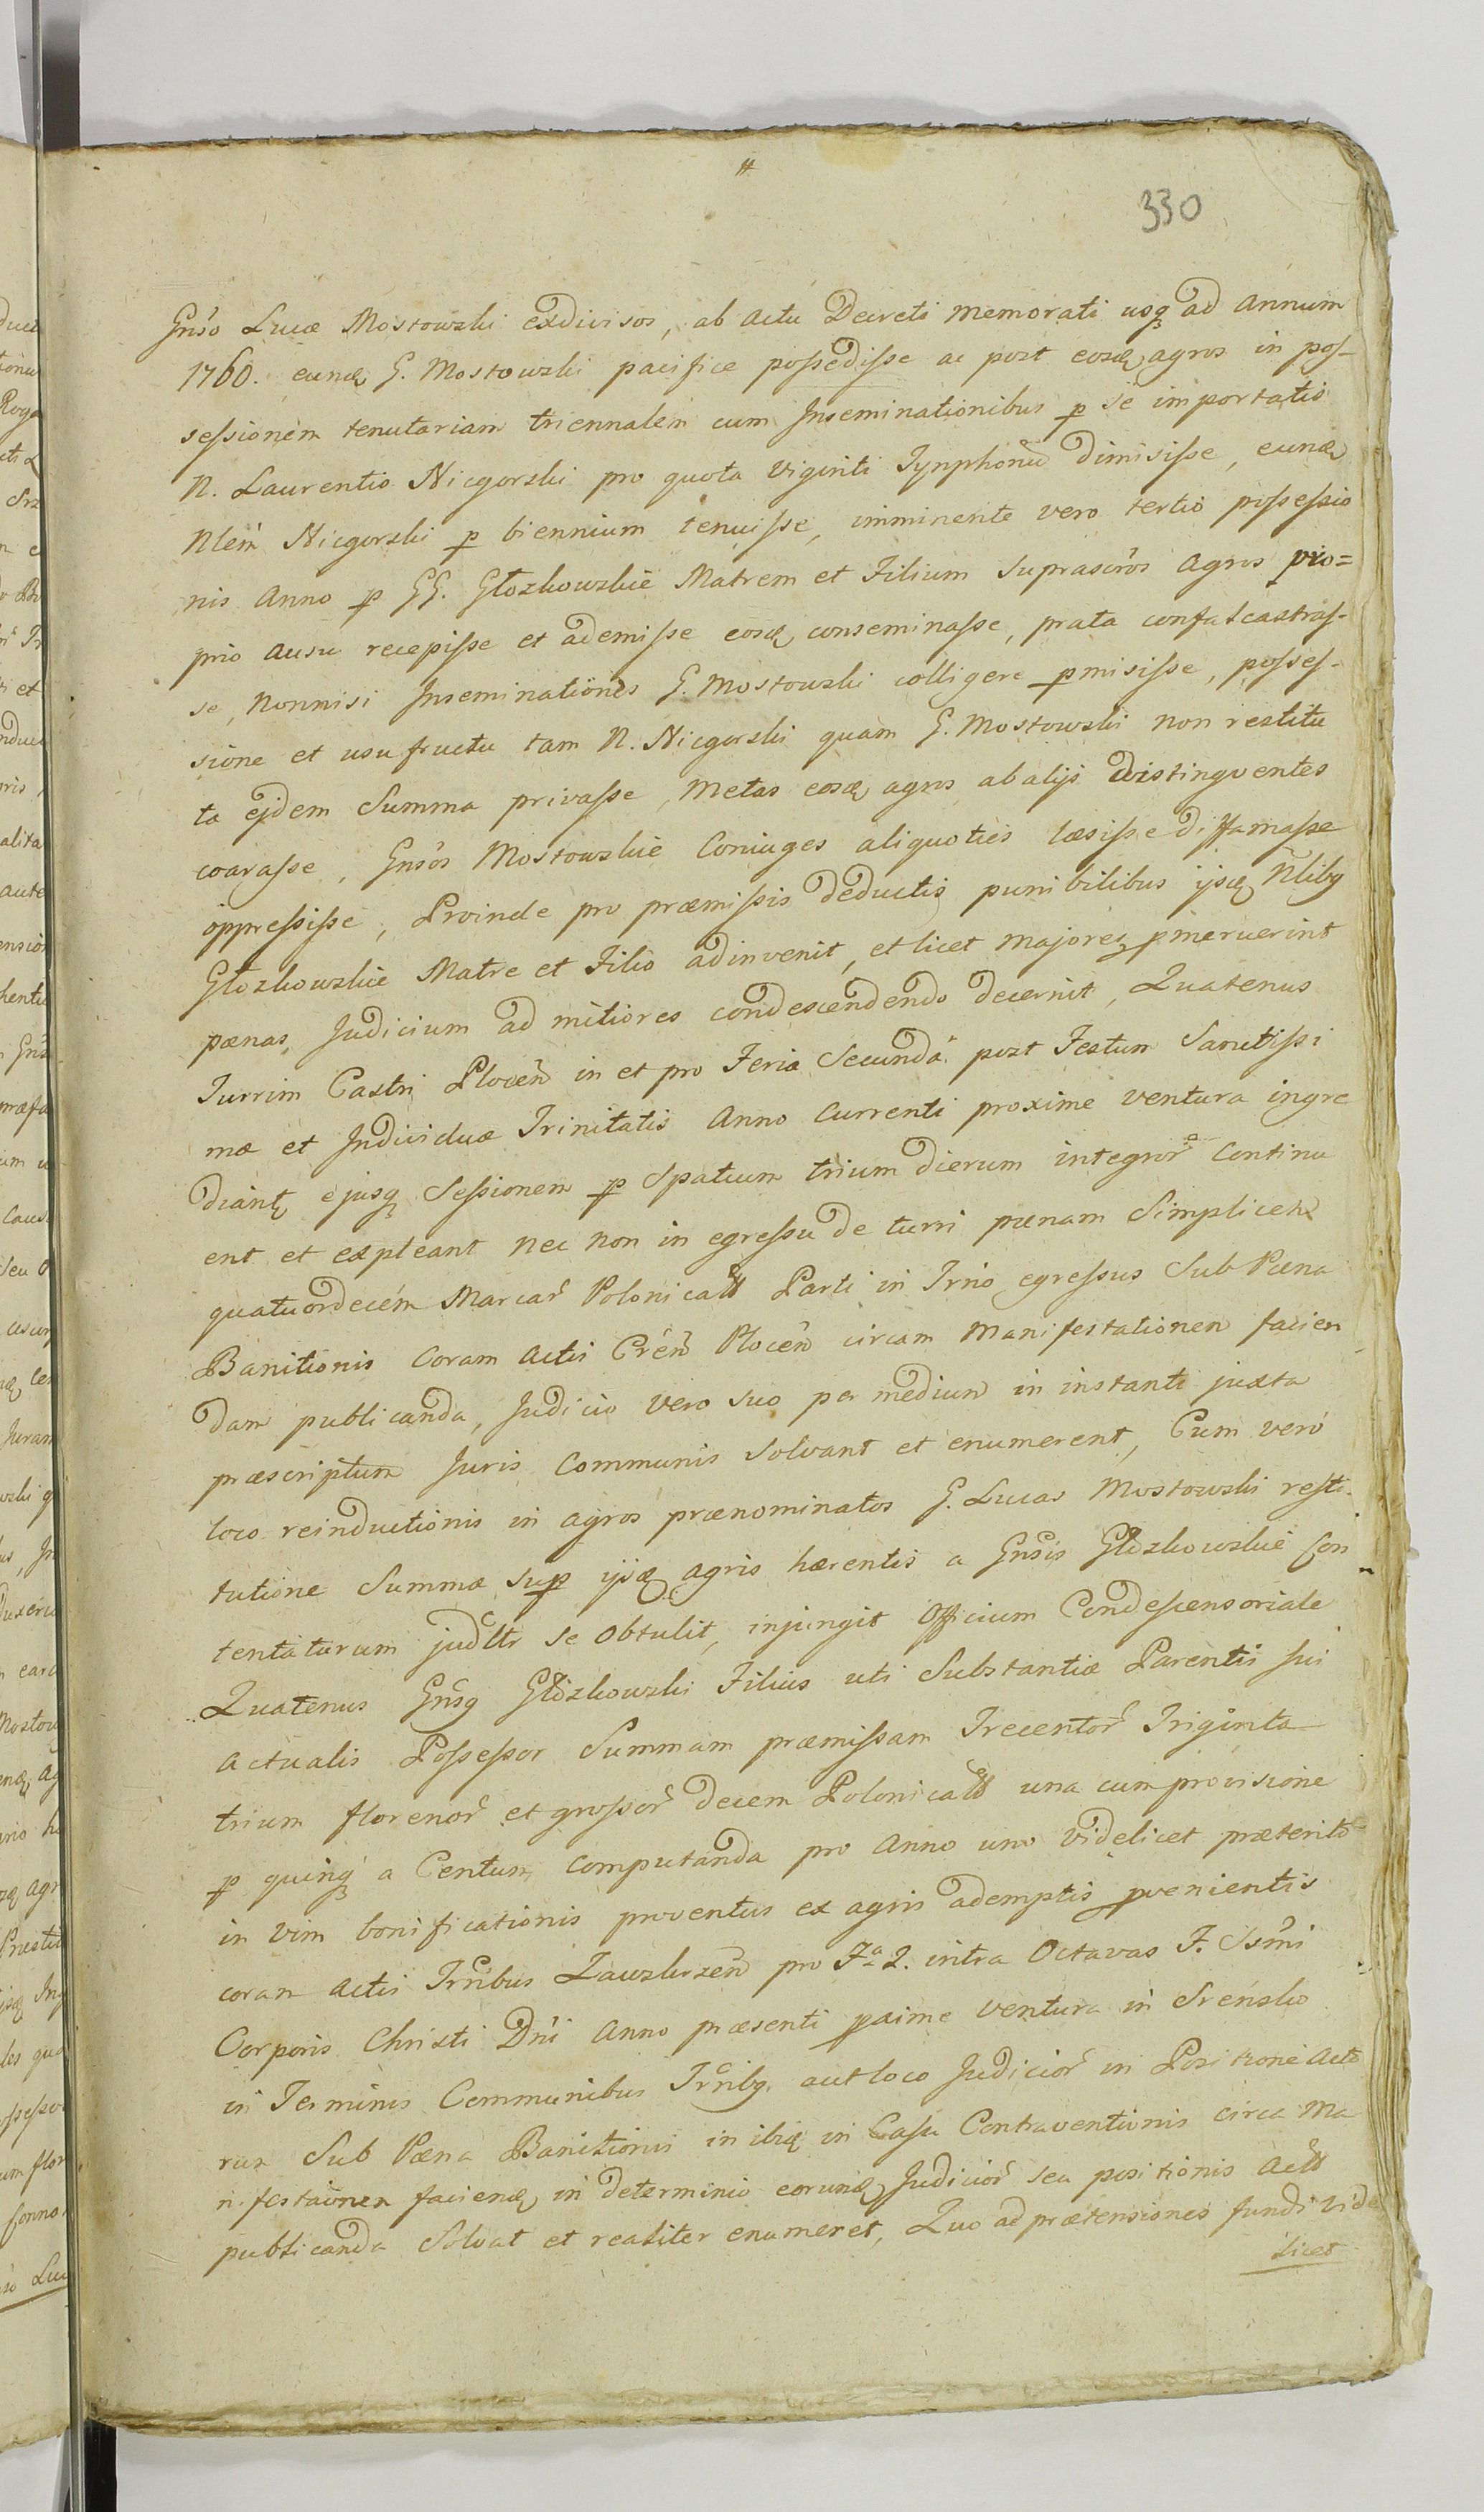 330
Gnso Lucæ Mostowski exdivisos, ab actu Decreti memorati usq ad Annum
1760. eundę G. Mostowski pacifice possedisse ac post eosdę agros in pos-
sessionem tenutariam triennalem cum Inseminationibus p se importatis
N. Laurentio Nicgorski pro quota viginti Tynphonũ dimisisse, eundę
Nlem Nicgorski p biennium tenuisse, imminente vero tertio possessio
nis Anno p GG. Głozkowskie Matrem et Filium suprascros Agros pro=
prio ausu recepisse et ademisse eosdę conseminasse, prata confalcastras-
se, nonnisi Inseminationes G. Mostowski colligere pmisisse, posses-
sione et usufructu tam N. Nicgorski quam G. Mostowski non restitu
ta ejdem Summa privasse, Metas eosdę agros ab alijs distingventes
coarasse, Gnsos Mostowskie Coniuges aliquoties læsisse diffamasse
oppressisse, Proinde pro præmissis deductis punibilibus ijsdę Nlibq
Głozkowskie Matre et Filio adinvenit, et licet majores pmeruerint
pænas, Judicium ad mitiores condescendendo decernit, Quatenus
Turrim Castri Plocen in et pro Feria Secunda post Festum Sanctissi
mæ et Individuæ Trinitatis Anno Currenti proxime ventura ingre
diantʒ ejusq Sessionem p Spatium trium dierum integror Continu
ent et expleant nec non in egressu de turri pænam Simplicem
quatuordecem Marcar Polonicall Parti in Trno egressus Sub Pæna
Banitionis Coram Actis Cren Plocen circam Manifestationem facien
dam publicanda, Judicio vero suo per medium in instanti juxta
præscriptum Juris Communis solvant et enumerent, Cum vero
loco reinductionis in agros prænominatos G. Lucas Mostowski resti-
tutione Summæ sup ijsdę agris hærentis a Gnsis Głozkowskie Con
tentaturum judltr se obtulit, injungit Officium Condescensoriale
Quatenus Gnsq Głozkowski Filius uti Substantiæ Parentis sui
Actualis Possessor Summam præmissam Trecentor Triginta
trium florenor et grossor decem Polonicall una cum provisione
p quinq a Centum computanda pro Anno uno videlicet præterito
in vim bonificationis proventus ex agris ademptis pvenientis
coram Actis Trnibus Zawskrzen pro Fa 2. intra Octavas F. Ssmi
Corporis Christi Dni Anno præsenti pxime ventura in Srensko
in Terminis Communibus Trnibq aut loco Judicior in Positione Acto
rum Sub Pæna Banitionis in ibidę in Casu Contraventionis circa Ma
nifestaionem faciendę in determinio eorundę Judicior seu positionis Acll
publicanda Solvat et realiter enumeret, Quo ad prætensiones fundi vide
licet